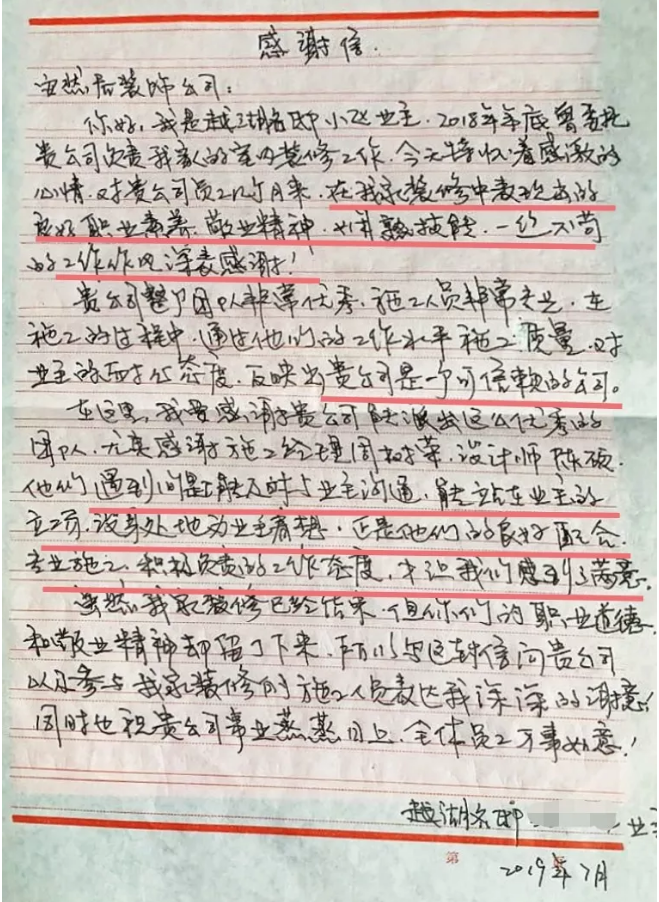 感谢信.
安然居装饰公司:
你好,我是越湖名邸小区业主.2018年年底曾委托
贵公司负责我家的室内装修工作.今天特怀着感激的
心情.对贵公司员工几个月来.在我家装修中表现出的
良好职业素养.敬业精神.娴熟技能.一丝不苟
的工作作风深表感谢!
贵公司整个团队非常优秀.施工人员非常专业.在
施工的过程中.通过他们的工作水平施工质量.对
业主的态度.反映出贵公司是一个可信赖的公司。
在这里.我要感谢贵公司能派出这么优秀的
团队.尤其感谢施工经理周树荣.设计师陈硕.
他们遇到问题能及时与业主沟通,能站在业主的
立场.设身处地为业主着想.正是他们的良好配合.
专业施工.积极负责的工作态度.才让我们感到了满意.
虽然我家装修已经结束.但你们的职业道德
和敬业精神却留了下来.所以写这封信向贵公司
以及参与我家装修的施工人员表达我深深的谢意!
同时也祝贵公司事业蒸蒸日上.全体员工万事如意!
越湖名邸 业主
第
2019年7月